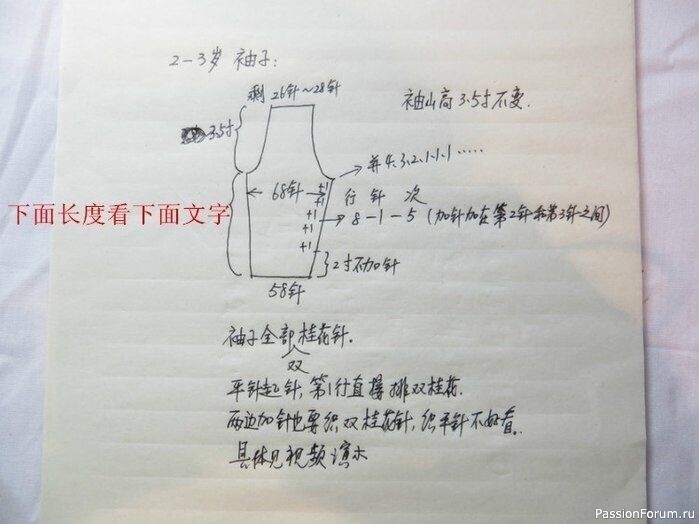 2-3岁 袖子:
剩26针~28针
袖山高3.5寸不变.
3.5寸
并4、3、2、1、1、1……
68针
+1
行 针 次
+1
+1
8-1-5(加针加在第2针和第3针之间)
+1
+1
下面长度看下面文字
2寸不加针
58针
袖子全部双桂花针.
平针起针,第1行直接排双桂花.
两边加针也要织双桂花针,织平针不好看.
具体见视频演示
PassionForum.ru